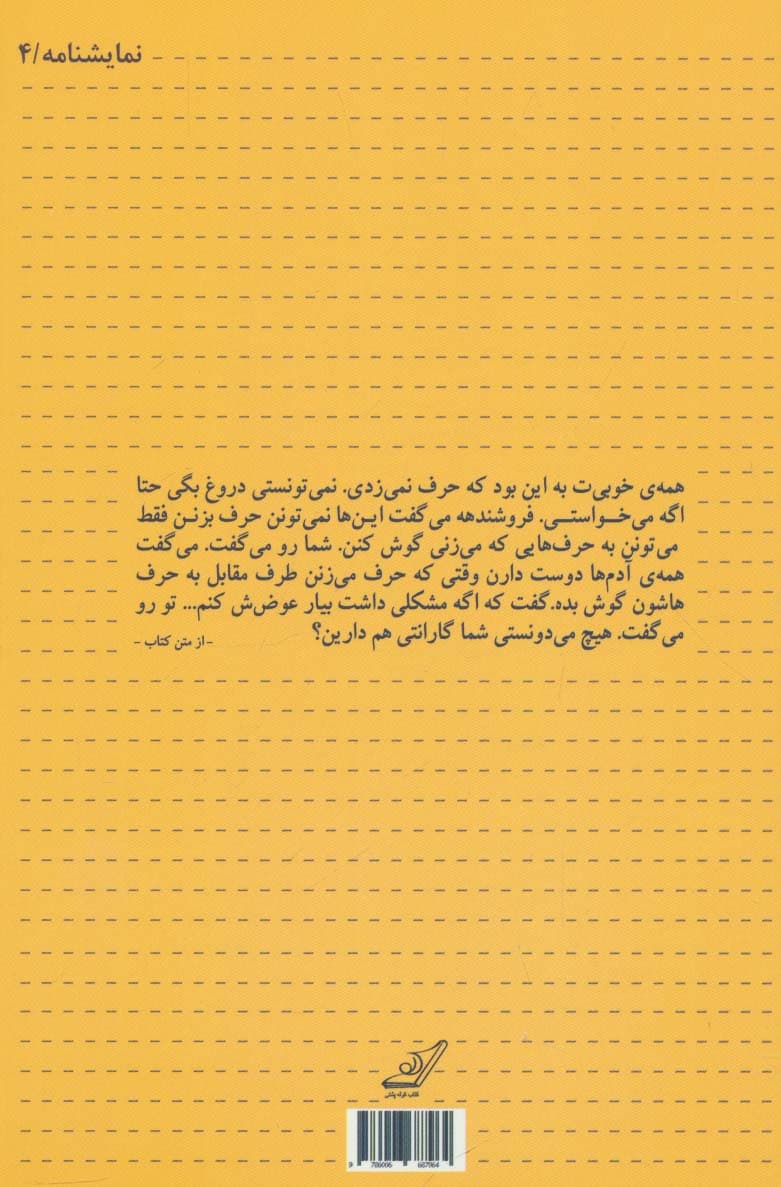 نمایشنامه/۴
همه‌ی خوبی‌ت به این بود که حرف نمی‌زدی. نمی‌تونستی دروغ بگی حتا
اگه می‌خواستی. فروشندهه می‌گفت این‌ها نمی‌تونن حرف بزنن فقط
می‌تونن به حرف‌هایی که می‌زنی گوش کنن. شما رو می‌گفت. می‌گفت
همه‌ی آدم‌ها دوست دارن وقتی که حرف می‌زنن طرف مقابل به حرف
هاشون گوش بده.گفت که اگه مشکلی داشت بیار عوض‌ش کنم... تو رو
می‌گفت. هیچ می‌دونستی شما گارانتی هم دارین؟
- از متن کتاب -
کتاب کوله پشتی
9 786006 687964